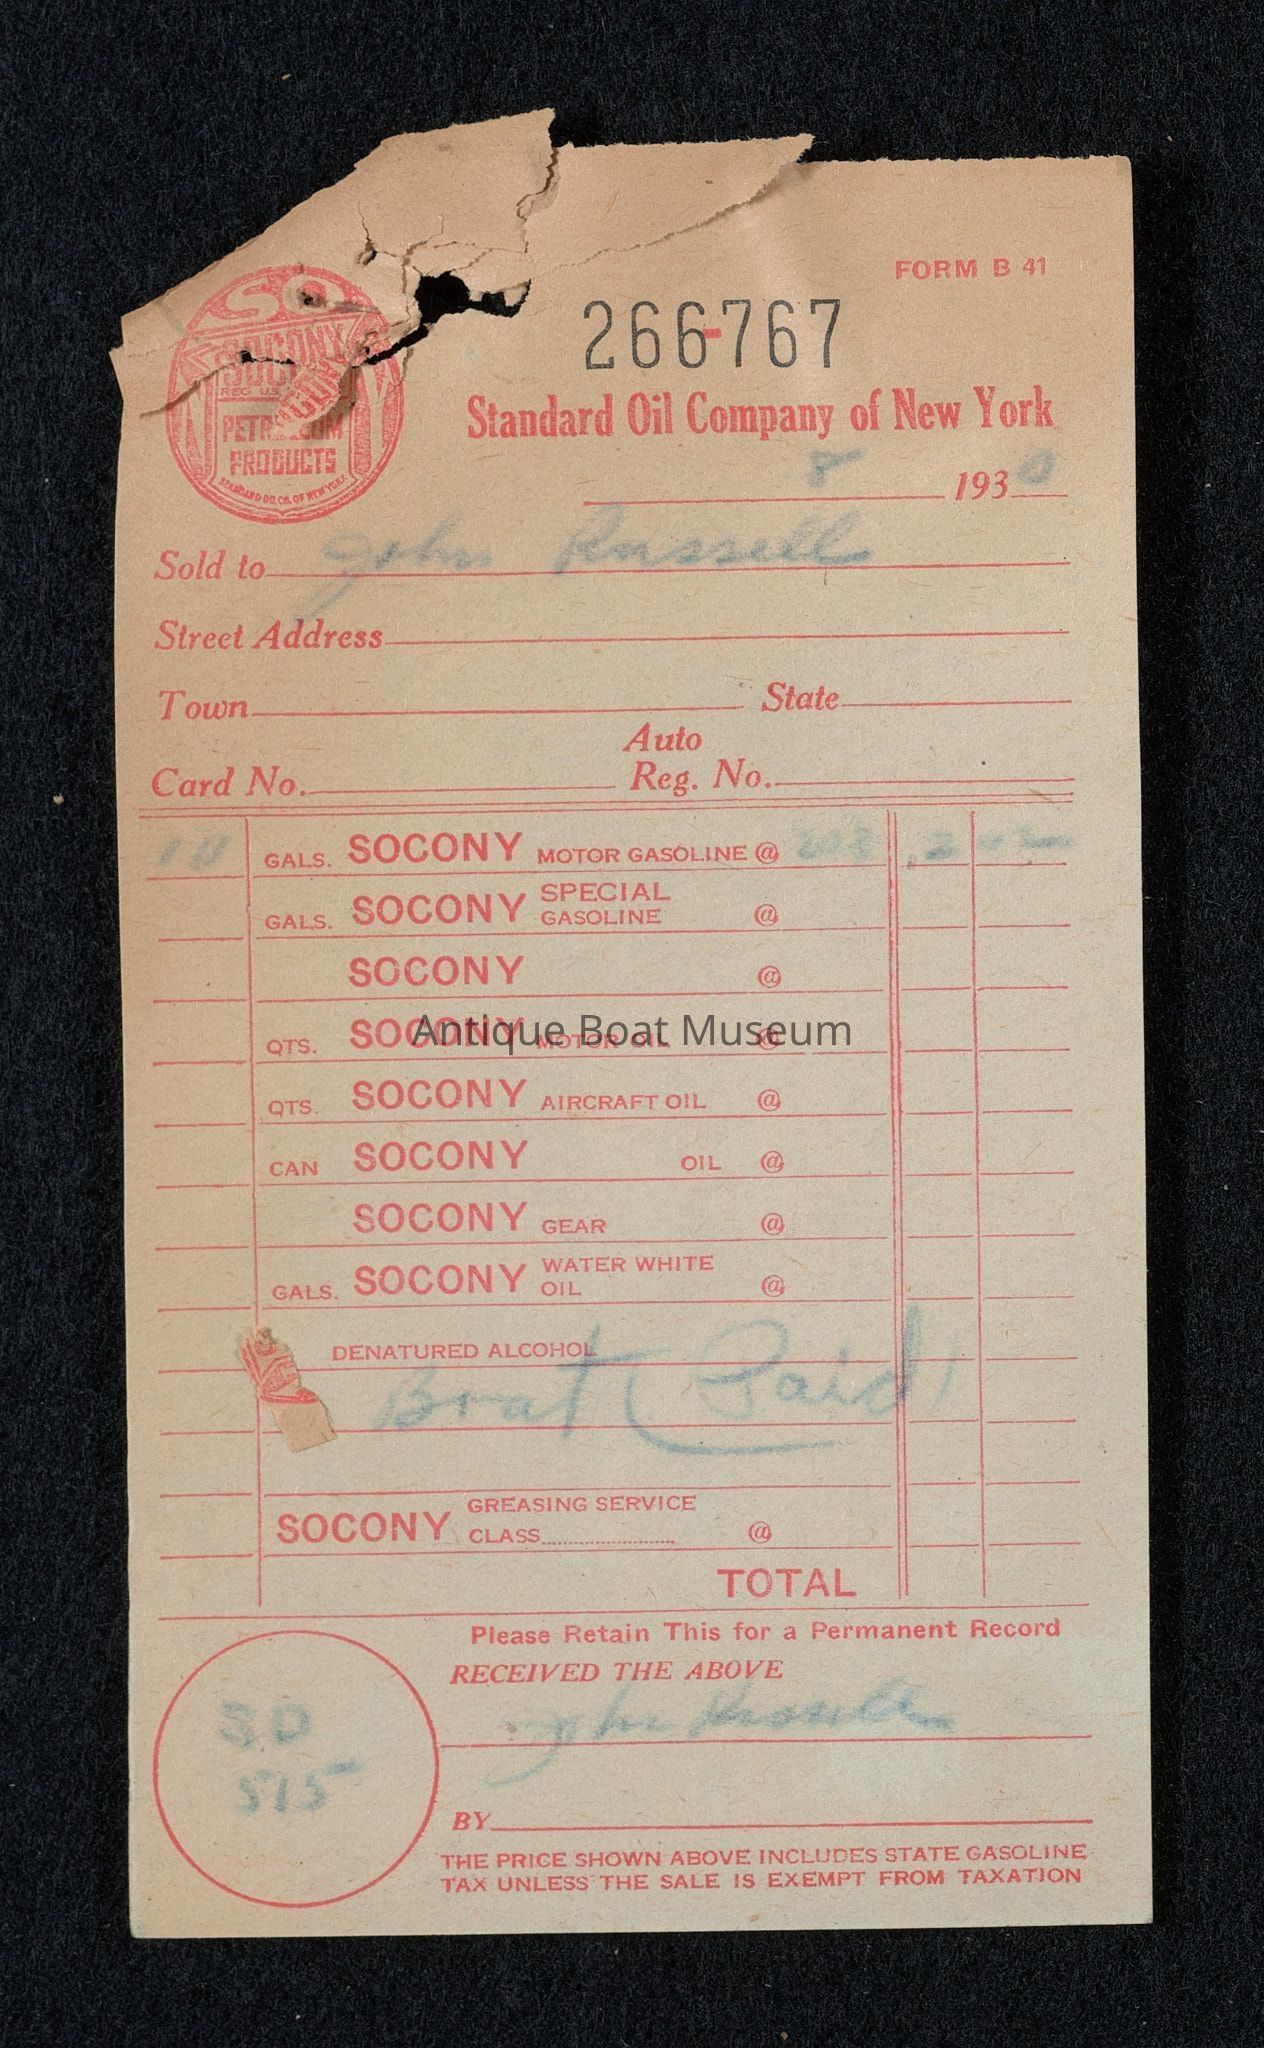 FORM B 41
266-767
SO
SOCONY
REG. U.S.
PETROLEUM
PRODUCTS
STANDARD OIL CO. OF NEW YORK
Standard Oil Company of New York
8 1930
Sold to John Russell
Street Address
Town State
Auto
Card No. Reg. No.
10 GALS. SOCONY MOTOR GASOLINE @
GALS. SOCONY SPECIAL GASOLINE @
SOCONY @
QTS. SOCONY MOTOR OIL @
Antique Boat Museum
QTS. SOCONY AIRCRAFT OIL @
CAN SOCONY OIL @
SOCONY GEAR @
GALS. SOCONY WATER WHITE OIL @
DENATURED ALCOHOL
Boat (Paid)
GREASING SERVICE
SOCONY CLASS @
TOTAL
Please Retain This for a Permanent Record
RECEIVED THE ABOVE
John Russell
515
BY
THE PRICE SHOWN ABOVE INCLUDES STATE GASOLINE
TAX UNLESS THE SALE IS EXEMPT FROM TAXATION